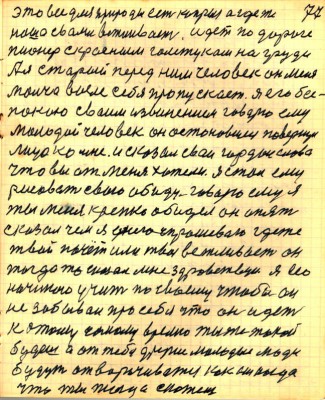 77
это все для природы есть а где же
наша с вами вежливаст. идет по дороге
пионер с красеним галстукам на груди
А я старый перед ним человек он меня
молча возле себя пропускает. я его бес-
покою своим извинением говорю ему
молодой человек он остоновился повернул
лицо ко мне. и сказал сваи гордые слова
что вы от меня хотели. Я стал ему
рисовать свою обиду. говорю ему я
ты меня крепко обидел он опят
сказал чем я его спрашеваю где же
твой почёт или твоя вежливаст он
тогда то сказал мне здравствуй. я его
начинаю учит по своему чтобы он
не забывал про себя что он идет
к этому самому время ты же такой
будеш и от тебя другие молодые люди
будут отворачиватся как он когда
что ты тогда скажеш